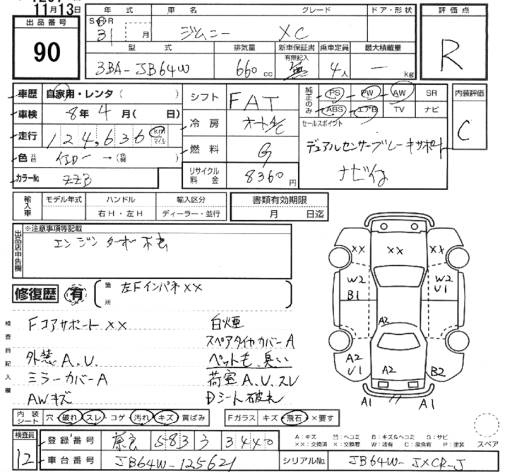 11月13日
出品番号
90
年式 車名 グレード ドア・形状
31 月 ジムニー XC
評価点
R
型式 排気量 新車保証書 乗車定員 最大積載量
有無記入
3BA-JB64W 660cc 無 4人 kg
車歴 自家用・レンタ( )
車検 8年 4月( 日)
走行 124,636 km マイル
色 イエロー→(色替)
カラーNo ZZB
シフト FAT
冷房 オートA/C
燃料 G
リサイクル料金 8360円
純正のみ
PS PW AW SR
ABS エアB TV ナビ
セールスポイント
デュアルセンサーブレーキサポート
ナビ付
内装評価
C
輸入車 モデル年式 ハンドル 輸入区分
年 右H・左H ディーラー・並行
書類有効期限
月 日迄
出品店申告欄
※注意事項等記載
エンジンターボ不良
修復歴 有
箇所 左FインパネXX
検査員記入欄
FコアサポートXX
外装A.U.
ミラーカバーA
AWキズ
白煙
スペアタイヤカバーA
ペットモ、臭い
荷室A.U.スレ
Dシート破れ
XX XX XX
W2 B1
W2 U1
A2
W2 U1
A2
B2
A1 A1
スペア
内装シート 穴 破れ スレ コゲ 汚れ キズ 黄ばみ
Fガラス キズ 飛石 ×要す
検査員
12
登録番号 5833 3440
車台番号 JB64W-125621
シリアルNo. JB64W-JXCR-J